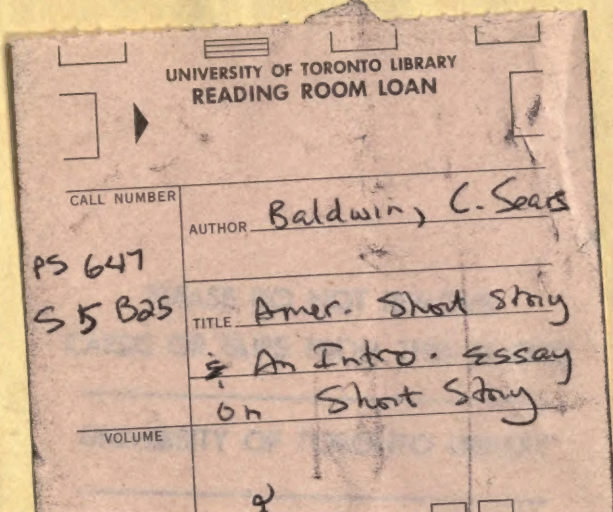 UNIVERSITY OF TORONTO LIBRARY
READING ROOM LOAN
CALL NUMBER
PS 647
S5 B25
AUTHOR Baldwin, C. Sears
TITLE Amer. Short Story
& An Intro. Essay
on Short Story
VOLUME